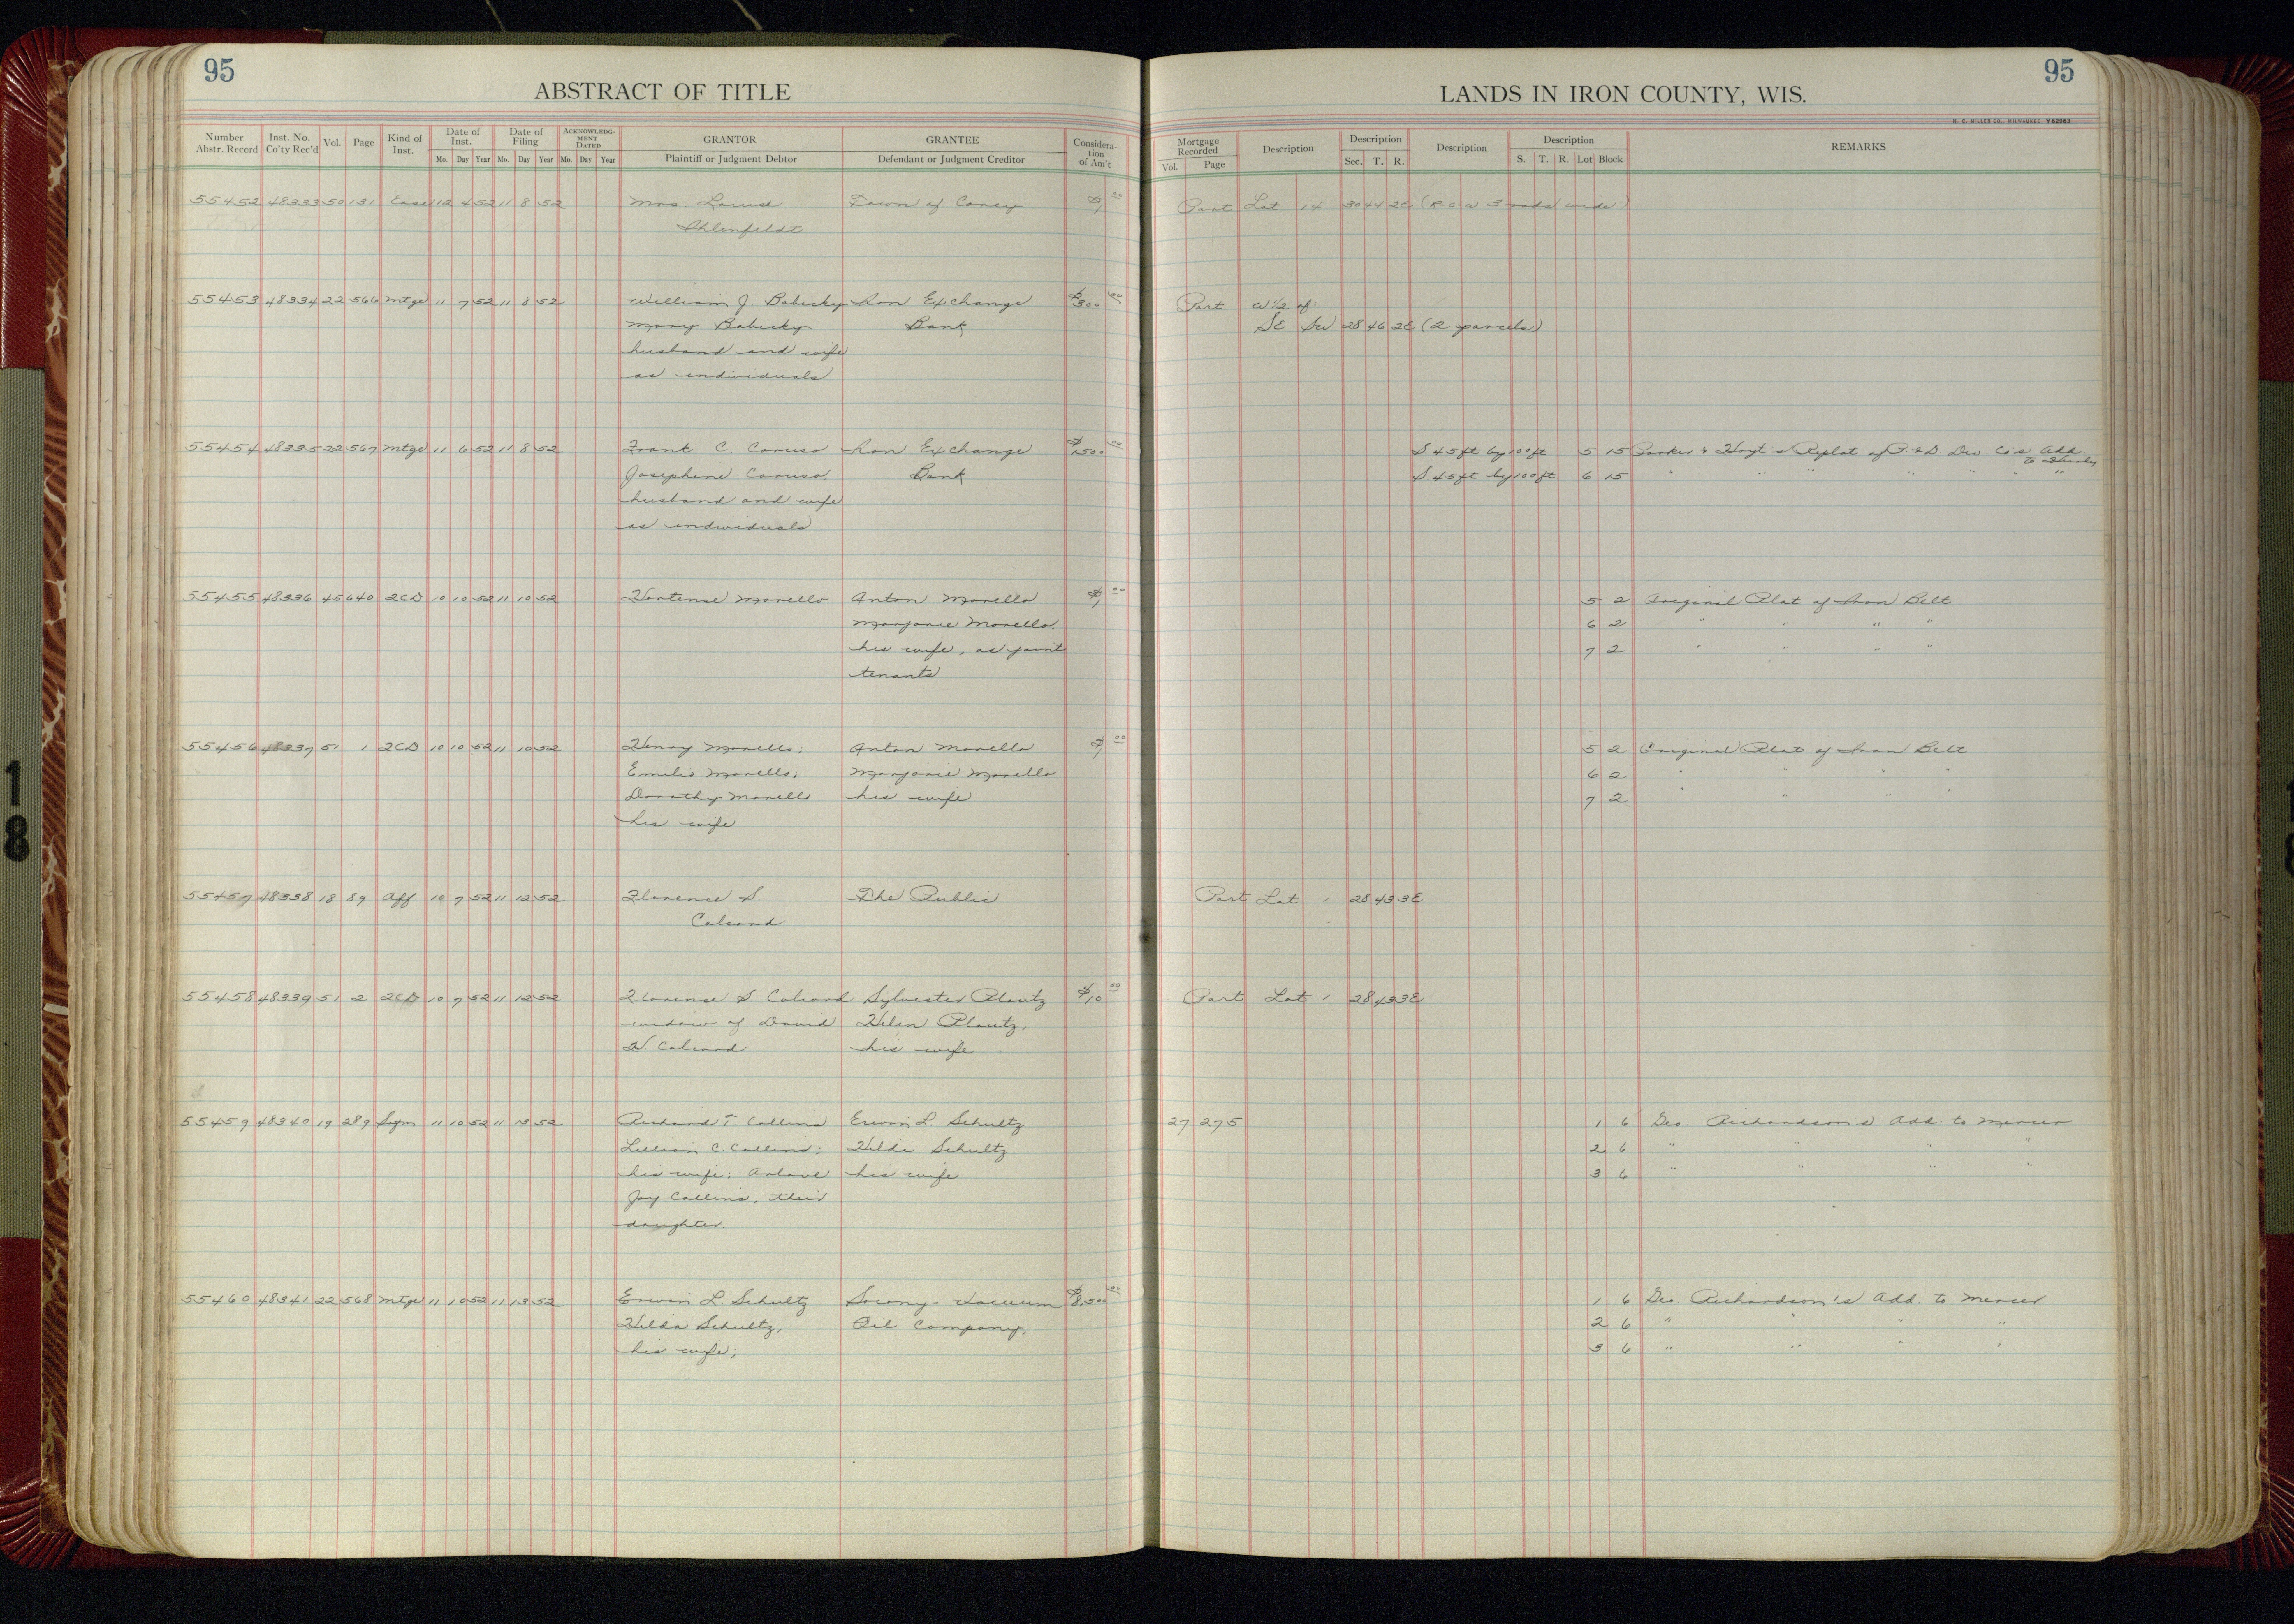 95
ABSTRACT OF TITLE
Number Abstr. Record Inst. No. Co'ty Rec'd Vol. Page Kind of Inst. Date of Inst. Mo. Day Year Date of Filing Mo. Day Year ACKNOWLEDGMENT DATED Mo. Day Year GRANTOR Plaintiff or Judgment Debtor GRANTEE Defendant or Judgment Creditor Consideration of Am't
55452 48333 50 131 Ease 12 4 52 11 8 52 Mrs Louise Town of Carey $1 00
Ihlenfeldt
55453 48334 22 566 Mtge 11 7 52 11 8 52 William J. Babicky Iron Exchange $300 00
Mary Babicky Bank
husband and wife
as individuals
55454 48335 22 567 Mtge 11 6 52 11 8 52 Frank C. Caruso Iron Exchange $1500 00
Josephine Caruso, Bank
husband and wife
as individuals
55455 48336 45 640 2CD 10 10 52 11 10 52 Hortense Morello Anton Morello $1 00
Marjorie Morello,
his wife, as joint
tenants
55456 48337 51 1 2CD 10 10 52 11 10 52 Henry Morello; Anton Morello $1 00
Emilio Morello, Marjorie Morello
Dorothy Morello his wife
his wife
55457 48338 18 89 Aff 10 7 52 11 12 52 Florence S. The Public
55458 48339 51 2 2CD 10 7 52 11 12 52 Florence S. Sylvester Plautz $10 00
widow of David Helen Plautz,
H. his wife
55459 48340 19 289 11 10 52 11 13 52 Richard T. Collins Erwin L. Schultz
Lillian C. Collins; Hilda Schultz
his wife; Arlowe his wife
Joy Collins, their
daughter.
55460 48341 22 568 Mtge 11 10 52 11 13 52 Erwin L Schultz Socony-Vacuum $8,500 00
Hilda Schultz, Oil Company,
his wife;
95
LANDS IN IRON COUNTY, WIS.
H. C. MILLER CO., MILWAUKEE Y82963
Mortgage Recorded Vol. Page Description Description Sec. T. R. Description Description S. T. R. Lot Block REMARKS
Part Lot 14 30 44 2E (R.O.W 3 rods wide)
Part W 1/2 of:
SE SW 28 46 2E (2 parcels)
S 45 ft by 100 ft 5 15 Parker & Hoyt's Replat of P & D Dev. Co's Add
to Hurley
S. 45 ft by 100 ft 6 15 " " " " " " "
5 2 Original Plat of Iron Belt
6 2 " " " "
7 2 " " " "
5 2 Original Plat of Iron Belt
6 2 " " " "
7 2 " " " "
Part Lot 1 28 43 3E
Part Lot 1 28 43 3E
27 275 1 6 Geo. Richardson's Add. to Mercer
2 6 " " " "
3 6 " " " "
1 6 Geo. Richardson's Add. to Mercer
2 6 " " " "
3 6 " " " "
18